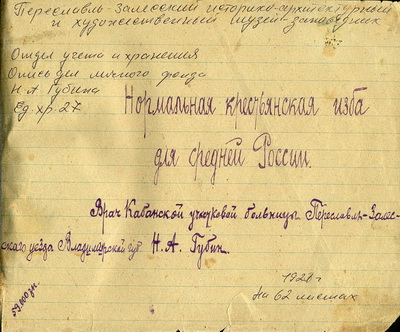 Переславль-Залесский историко-архитектурный
и художественный музей-заповедник
Отдел учета и хранения
Опись личного фонда
Н. А. Губина
Ед. хр. 27
Нормальная крестьянская изба
для средней России.
Врач Кабанской участковой больницы Переславль-Залес-
ского уезда Владимирской губ. Н. А. Губин.
1921 г
На 62 листах